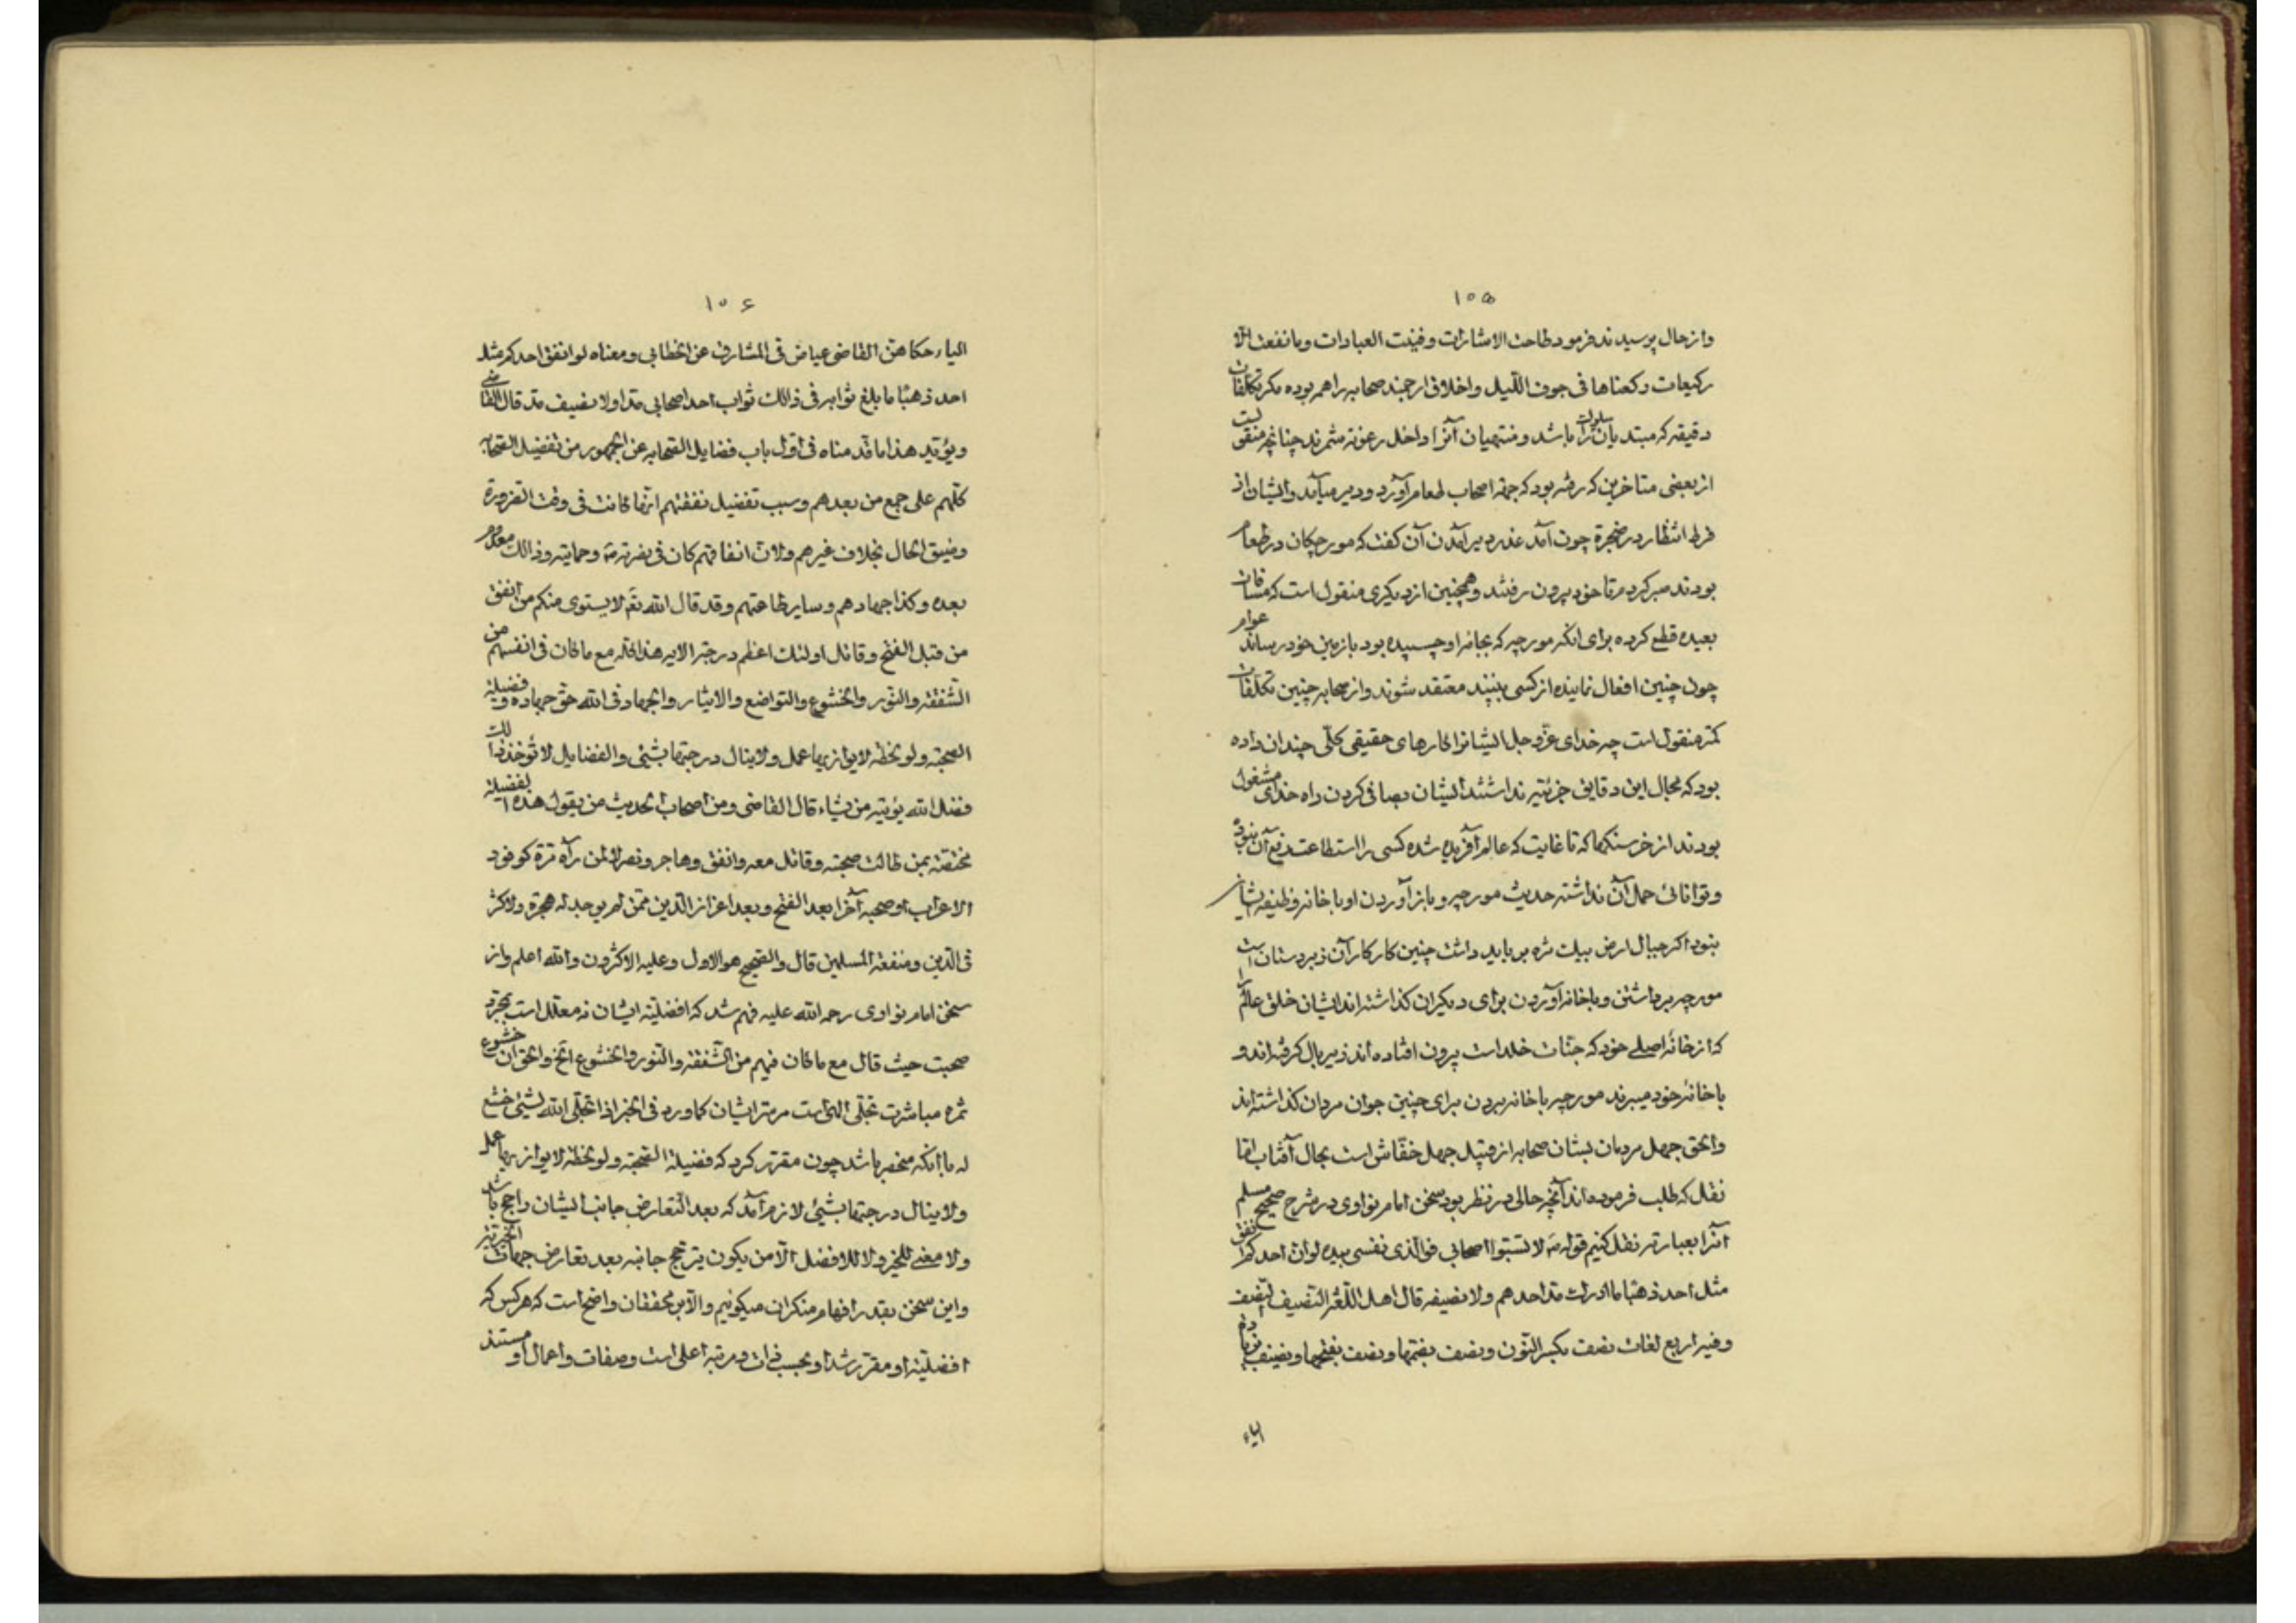 ۱۰۵
واز حال پرسیدند فرمود طاحت الاشارات وفنیت العبادات وما نفعنا الا
رکیعات رکعناها فی جوف اللیل واخلاق ارجمند صحابه را همر بوده مکر تکلفات
دقیقه که مبتدیان سلوک را باشد ومنتهیان آنرا داخل رعونة شمرند چنانچه منقولست
از بعضی متاخرین که رفته بود که جهة اصحاب طعام آورد و دیر میآمد وایشان از
فرط انتظار در ضجرة چون آمد عذر دیر آمدن آن کفت که مورچکان در طعام
بودند صبر کردم تا خود بیرون رفتند وهمچنین از دیکری منقول است که مسافات
بعیده قطع کرده برای انکه مورچه که بجامه او چسبیده بود بازمین خود رساند عوام
چون چنین افعال نماینده از کسی بینند معتقد شوند واز صحابه چنین تکلفات
کمتر منقول است چه خدای عزّ وجل ایشانرا کارهای حقیقی کلّی چندان داده
بود که مجال این دقایق جزئیه نداشتند ایشان بصافی کردن راه خدای مشغول
بودند از خرسنکها که تا غایت که عالم آفریده شده کسی را استطاعت رفع آن نبوده
وتوانائی حمل آن نداشته حدیث مورچه وباز آوردن او باخانه وظیفه ایشان
نبود اکر جبال ارض بیک مژه بر باید داشت چنین کار کار آن زبردستان است
مورچه برداشتن وباخانه آوردن برای دیکران کذاشته اند ایشان خلق عالم را
که از خانهٔ اصلی خود که جنّات خلد است بیرون افتاده اند زیر بال کرفته اند و
باخانهٔ خود میبرند مورچه باخانه بردن برای چنین جوان مردان کذاشته اند
والحق جهل مردمان بشان صحابه از قبیل جهل خفّاش است بحال آفتاب امّا
نقل که طلب فرموده اند آنچه حالی در نظر بود سخن امام نواوی در شرح صحیح مسلم
آنرا بعبارته نقل کنیم قوله صَم لا تسبّوا اصحابی فوالذی نفسی بیده لو ان احدکم انفق
مثل احد ذهبًا ما ادرک مدّ احدهم ولا نصیفه قال اهل اللّغة النّصیف النّصف
وفیه اربع لغات نصف بکسر النّون ونصف بضمّها ونصف بفتحها ونصیف بزیادة
الیاء
۱۰۶
الیاء حکاهنّ القاضی عیاض فی المشارق عن الخطابی ومعناه لو انفق احدکم مثل
احد ذهبًا ما بلغ ثوابه فی ذالک ثواب احد اصحابی مدّا ولا نصیف مدّ قال القاضی
ویؤیّد هذا ما قدّمناه فی اوّل باب فضایل الصّحابه عن الجمهور من تفضیل الصّحابه
کلّهم علی جمع من بعدهم وسبب تفضیل نفقتهم انّها کانت فی وقت الضرورة
وضیق الحال بخلاف غیرهم ولانّ انفاقهم کان فی نصرته صَم وحمایته وذالک معدوم
بعده وکذا جهادهم وسایر طاعتهم وقد قال الله تعَم لا یستوی منکم من انفق
من قبل الفتح وقاتل اولئک اعظم درجة الایه هذا کلّه مع ما کان فی انفسهم من
الشّفقة والنّور والخشوع والتواضع والایثار والجهاد فی الله حقّ جهاده وفضیلة
الصّحبة ولو لحظة لا یوازیها عمل ولا ینال درجتها بشئی والفضایل لا تؤخذ ذالک
فضل الله یؤتیه من یشاء قال القاضی ومن اصحاب الحدیث من یقول هذه الفضیلة
مختصّة بمن طالت صحبته وقاتل معه وانفق وهاجر ونصر لا لمن رآه مرّة کوفود
الاعراب او صحبه آخرا بعد الفتح وبعد اعزاز الدّین ممّن لم یوجد له هجرة ولا اثر
فی الدّین ومنفعة المسلمین قال والصّحیح هو الاول وعلیه الاکثرون والله اعلم واز
سخن امام نواوی رحمه الله علیه فهم شد که افضلیّته ایشان نه معلّل است بمجرّد
صحبت حیث قال مع ما کان فیهم من الشّفقة والنّور والخشوع الخ والحق آن خشوع
ثمره مباشرت تجلّی الهی است مرمترایشان کما ورد فی الخبر اذا تجلّی الله لشیئ خشع
له یا آنکه منحصر باشد چون مقرّر کرد که فضیلة الصّحبة ولو لحظة لا یوازیها عمل
ولا ینال درجتها بشئی لازم آمد که بعد التّعارض جانب ایشان راجح باشد
ولا معنی للخیر ولا للافضل الّا من یکون یترجّح جانبه بعد تعارض جهات الخیریّة
واین سخن بقدر افهام منکران میکوئیم والّا بر محققان واضح است که هر کس که
افضلیّة او مقرّر شد او بحسب ذات در مرتبه اعلی است وصفات واعمال او مستند